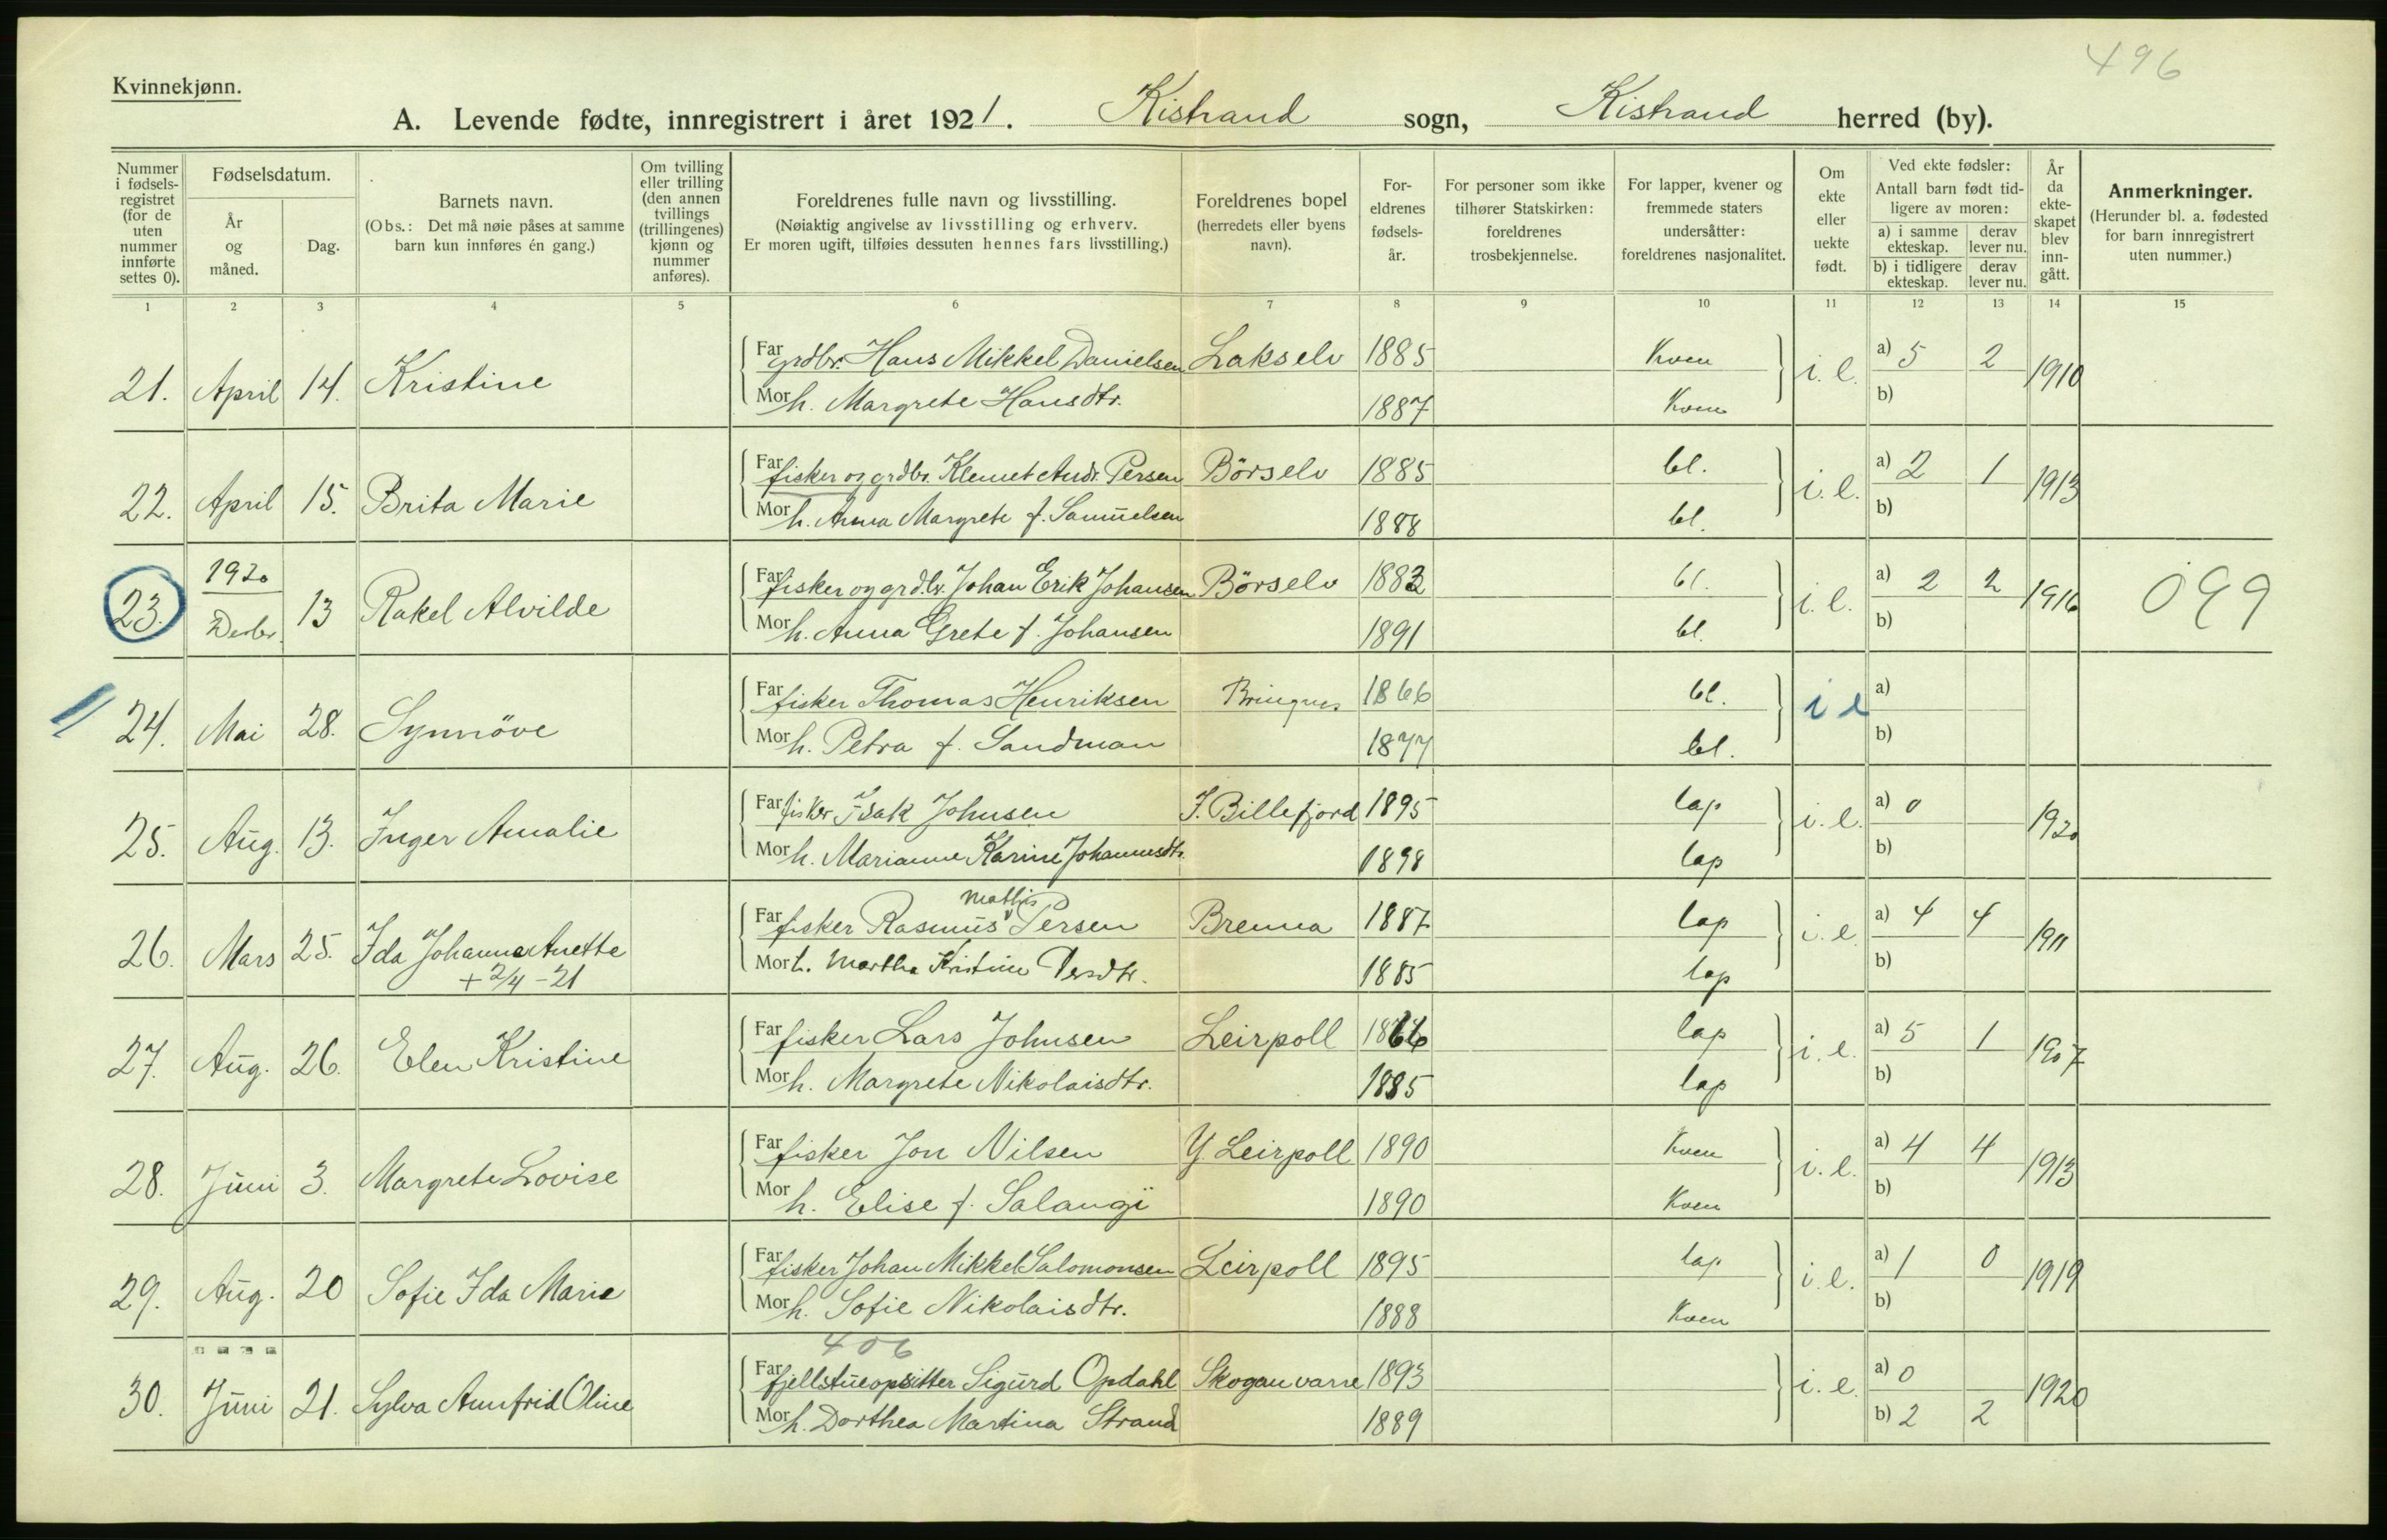 496
Kvinnekjønn.
A. Levende fødte, innregistrert i året 1921. Kistrand sogn, Kistrand herred (by).
Nummer i fødsels-registret (for de uten nummer innførte settes 0).
Fødselsdatum.
År og måned.
Dag.
Barnets navn.
(Obs.: Det må nøie påses at samme barn kun innføres én gang.)
Om tvilling eller trilling (den annen tvillings (trillingenes) kjønn og nummer anføres).
Foreldrenes fulle navn og livsstilling.
(Nøiaktig angivelse av livsstilling og erhverv.
Er moren ugift, tilføies dessuten hennes fars livsstilling.)
Foreldrenes bopel (herredets eller byens navn).
For-eldrenes fødsels-år.
For personer som ikke tilhører Statskirken: foreldrenes trosbekjennelse.
For lapper, kvener og fremmede staters undersåtter: foreldrenes nasjonalitet.
Om ekte eller uekte født.
Ved ekte fødsler:
Antall barn født tid-ligere av moren:
a) i samme ekteskap. derav lever nu.
b) i tidligere ekteskap. derav lever nu.
År da ekte-skapet blev inn-gått.
Anmerkninger.
(Herunder bl. a. fødested for barn innregistrert uten nummer.)
1 2 3 4 5 6 7 8 9 10 11 12 13 14 15
21. April 14. Kristine Far grdbr. Hans Mikkel Danielsen Lakselv 1885 Kven i. e. a) 5 2 1910
Mor h. Margrete Hansdtr. 1887 Kven b)
22. April 15. Brita Marie Far fisker og grdbr. Klemet Andr. Persen Börselv 1885 bl. i. e. a) 2 1 1913
Mor h. Anna Margrete f. Samuelsen 1888 bl. b)
23. 1920 Desbr. 13 Rakel Alvilde Far fisker og grdbr. Johan Erik Johansen Börselv 1882 bl. i. e. a) 2 2 1916 099
Mor h. Anna Grete f. Johansen 1891 bl. b)
24. Mai 28. Synnöve Far fisker Thomas Henriksen Bringnes 1866 bl. i e a)
Mor h. Petra f. Sandman 1877 bl. b)
25. Aug. 13. Inger Amalie Far fisker Isak Johnsen I. Billefjord 1895 lap i. e. a) 0 1920
Mor h. Marianne Karine Johannesdtr. 1898 lap b)
26. Mars 25. Ida Johanna Anette Far fisker Rasmus Mathis Persen Brenna 1887 lap i. e. a) 4 4 1911
+ 2/4 - 21 Mor h. Martha Kristine Persdtr. 1885 lap b)
27. Aug. 26. Elen Kristine Far fisker Lars Johnsen Leirpoll 1866 lap i. e. a) 5 1 1907
Mor h. Margrete Nikolaisdtr. 1885 lap b)
28. Juni 3. Margrete Lovise Far fisker Jon Nilsen Y. Leirpoll 1890 Kven i. e. a) 4 4 1913
Mor h. Elise f. Salangi 1890 Kven b)
29. Aug. 20 Sofie Ida Marie Far fisker Johan Mikkel Salomonsen Leirpoll 1895 lap i. e. a) 1 0 1919
Mor h. Sofie Nikolaisdtr. 1888 Kven b)
406
30. Juni 21. Sylva Annfrid Oline Far fjellstueopsitter Sigurd Opdahl Skoganvarre 1893 i. e. a) 0 1920
Mor h. Dorthea Martina Strand 1889 b) 2 2